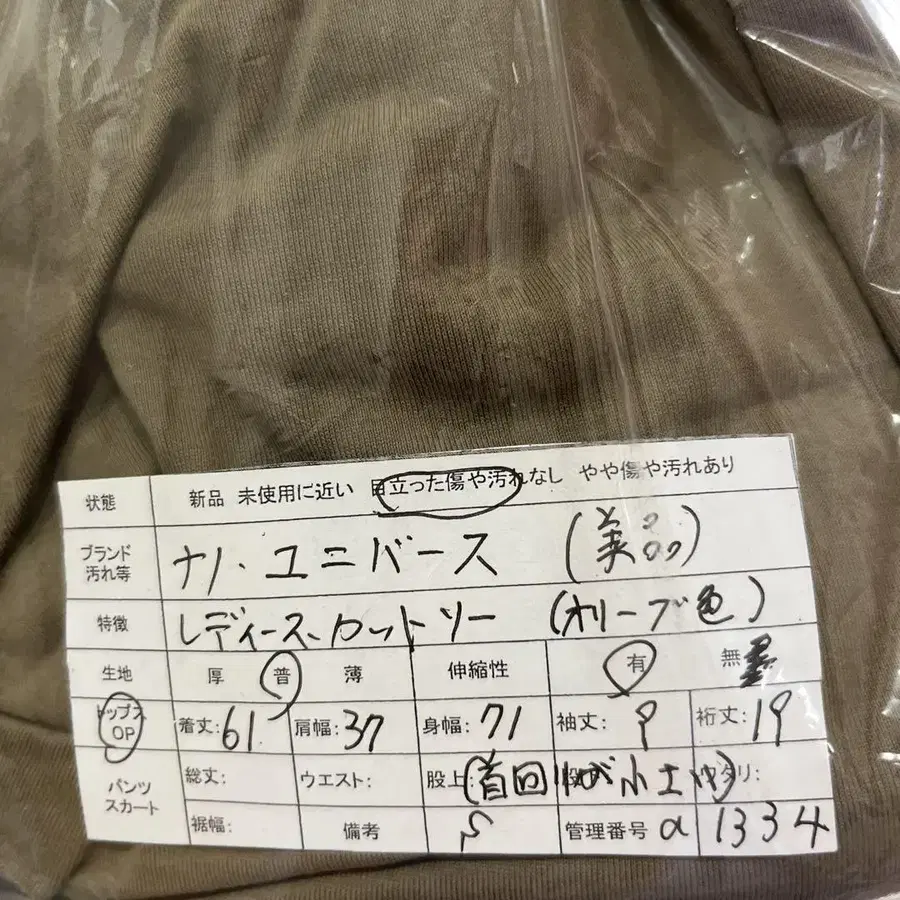 状態 新品 未使用に近い 目立った傷や汚れなし やや傷や汚れあり
ブランド 汚れ等 ナノ・ユニバース (美品)
特徴 レディース カットソー (オリーブ色)
生地 厚 普 薄 伸縮性 有 無
トップス OP 着丈:61 肩幅:37 身幅:71 袖丈:9 裄丈:19
パンツ スカート 総丈: ウエスト: 股上: (首回りが
裾幅: 備考 S 管理番号 α 1334